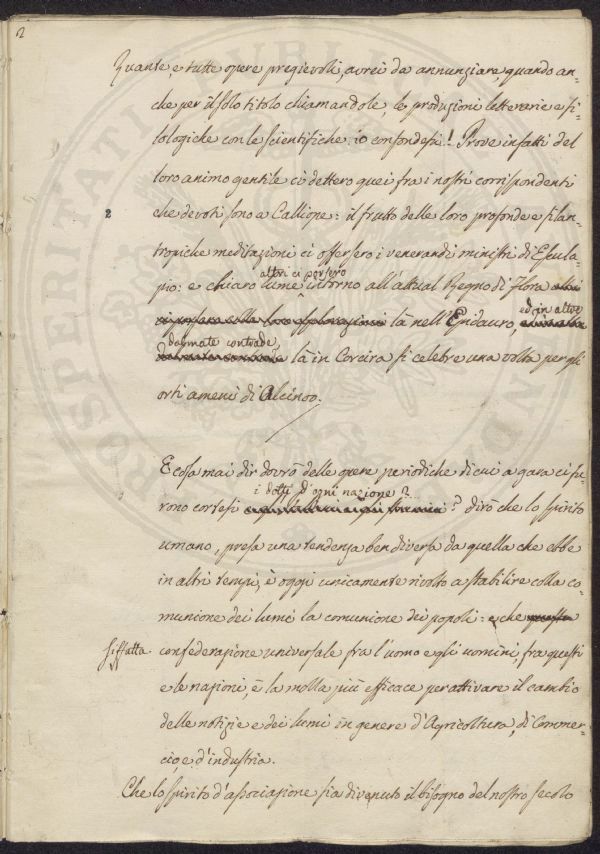 2
Quante, e tutte opere pregievoli, avrei da annunziare, quando an-
che per il solo titolo chiamandole, le produzioni letterarie e fi-
lologiche con le scientifiche io confondessi! Prove infatti del
loro animo gentile ci dettero quei fra i nostri corrispondenti
2 che devoti sono a Calliope: il frutto delle loro profonde e filan-
tropiche meditazioni ci offersero i venerandi ministri di Escula-
altri ci porsero
pio: e chiaro lume intorno all'attual Regno di Flora altri
ed in altre
ci porsero sulla loro esplorazioni là nell'Epidauro,
dalmate contrade,
là in Corcira sì celebre una volta per gli
orti ameni di Alcinoo.
E cosa mai dir dovrò delle opere periodiche di cui a gara ci fu-
i dotti d'ogni nazione?
rono cortesi ? dirò che lo spirito
umano, presa una tendenza ben diversa da quella che ebbe
in altri tempi, è oggi unicamente rivolto a stabilire colla co-
munione dei lumi la comunione dei popoli: e che questa
siffatta confederazione universale fra l'uomo e gli uomini, fra questi
e le nazioni, è la molla più efficace per attivare il cambio
delle notizie e dei lumi in genere d'Agricoltura, di Commer-
cio, e d'industria.
Che lo spirito d'associazione sia divenuto il bisogno del nostro secolo